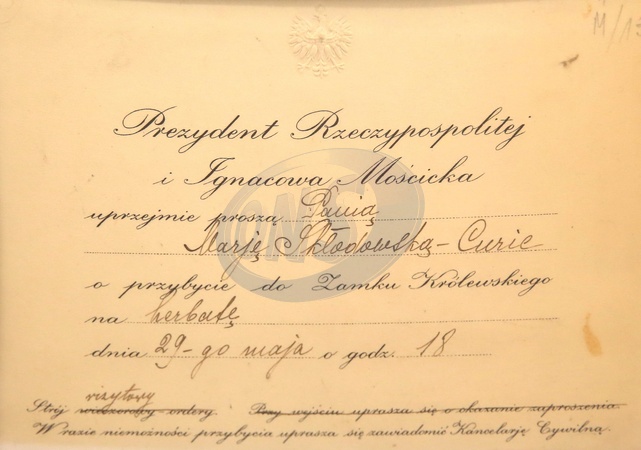 M/13
Prezydent Rzeczypospolitej
i Ignacowa Mościcka
uprzejmie proszą Panią
Marję Skłodowską-Curie
o przybycie do Zamku Królewskiego
na herbatę
dnia 29-go maja o godz. 18
wizytowy
Strój wieczorowy-ordery. Przy wejściu uprasza się o okazanie zaproszenia.
W razie niemożności przybycia uprasza się zawiadomić Kancelarję Cywilną.